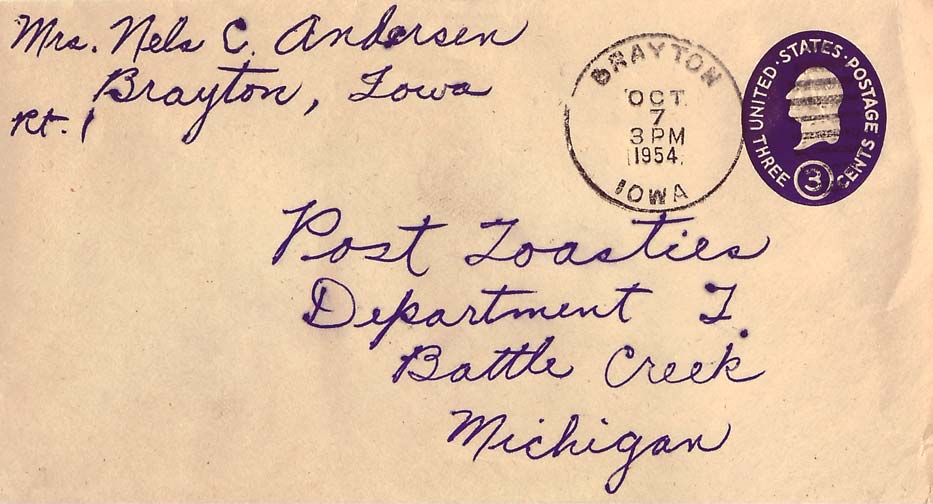 Mrs. Nels C. Andersen
Brayton, Iowa
Rt. 1
BRAYTON
OCT
7
3 PM
1954
IOWA
UNITED·STATES·POSTAGE
THREE 3 CENTS
Post Toasties
Department T.
Battle Creek
Michigan